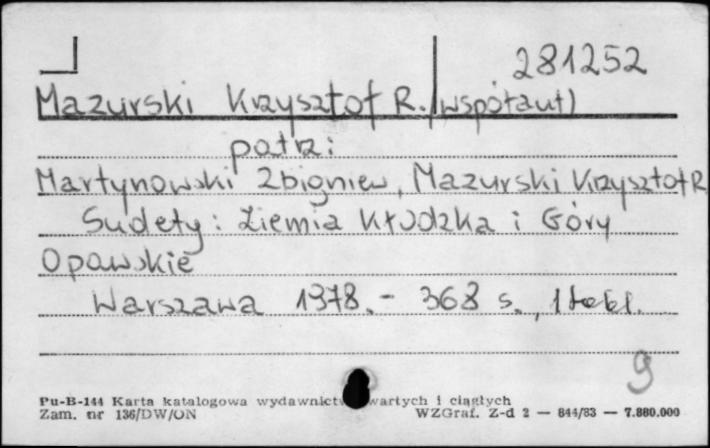 281252
Mazurski Krzysztof R. (współaut)
patrz:
Martynowski Zbigniew, Mazurski Krzysztof R
Sudety: Ziemia Kłodzka i Góry
Opawskie
Warszawa 1978.- 368 s., 1
9
Pu-B-144 Karta katalogowa wydawnictw zwartych i ciągłych
Zam. nr 136/DW/ON WZGraf. Z-d 2 — 844/83 — 7.880.000